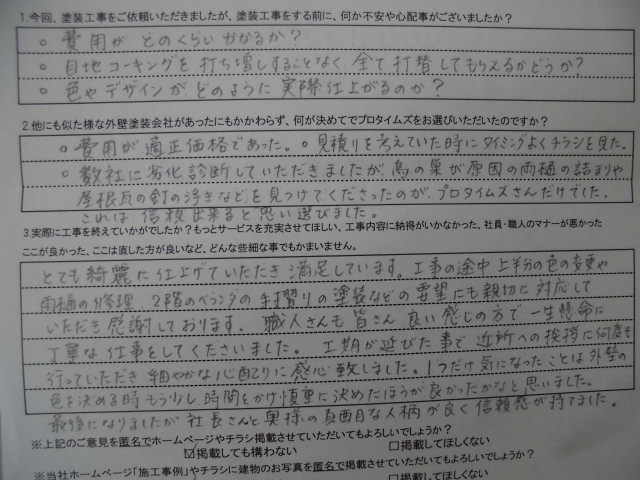 1.今回、塗装工事をご依頼いただきましたが、塗装工事をする前に、何か不安や心配事がございましたか？
○ 費用が どのくらいかかるか？
○ 目地コーキングを 打ち増しすることなく、全て打替してもらえるかどうか？
○ 色やデザインが どのように 実際仕上がるのか？
2.他にも似た様な外壁塗装会社があったにもかかわらず、何が決めてでプロタイムズをお選びいただいたのですか？
○ 費用が適正価格であった。○ 見積りを考えていた時にタイミングよくチラシを見た。
○ 数社に劣化診断していただきましたが、鳥の巣が原因の雨樋の詰まりや
屋根瓦の釘の浮きなどを見つけてくださったのが、プロタイムズさんだけでした。
これは 信頼出来ると思い選びました。
3.実際に工事を終えていかがでしたか？もっとサービスを充実させてほしい、工事内容に納得がいかなかった、社員・職人のマナーが悪かった
ここが良かった、ここは直した方が良いなど、どんな些細な事でもかまいません。
とても綺麗に仕上げていただき 満足しています。工事の途中 上半分の色の変更や
雨樋の修理、2階のベランダの手摺りの塗装などの要望にも親切に対応して
いただき 感謝しております。 職人さんも 皆さん 良い感じの方で 一生懸命に
丁寧な仕事をしてくださいました。 工期が延びた事で 近所への挨拶に何度も
行っていただき 細やかな心配りに感心致しました。1つだけ気になったことは外壁の
色を決める時もう少し時間をかけ慎重に決めたほうが良かったかなと思いました。
最後になりましたが 社長さんと奥様の真面目な人柄が良く信頼感が持てました。
※上記のご意見を匿名でホームページやチラシ掲載させていただいてもよろしいでしょうか？
☑掲載しても構わない □掲載してほしくない
※当社ホームページ「施工事例」やチラシに建物のお写真を匿名で掲載させていただいてもよろしいでしょうか？
□掲載してほしくない